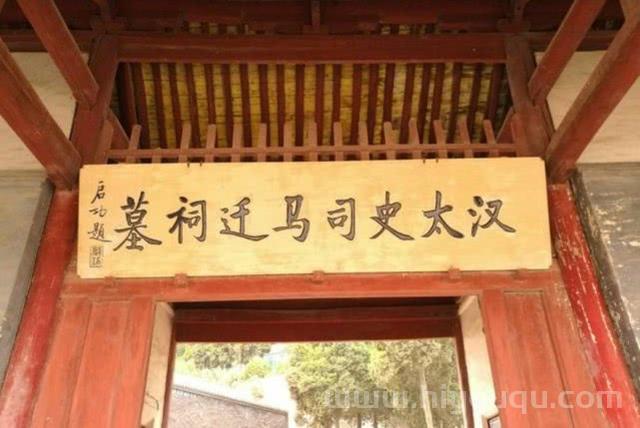 汉太史司马迁祠墓
启功题
www.hiyouqu.com